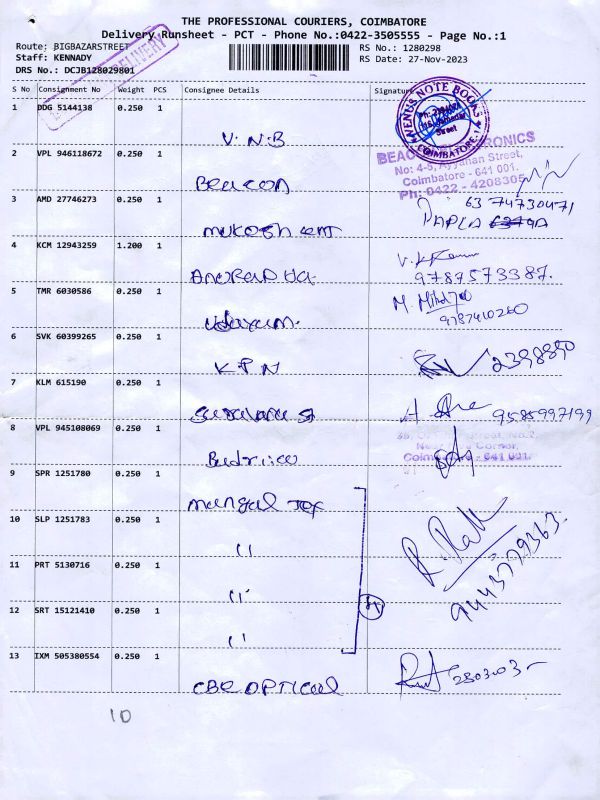 THE PROFESSIONAL COURIERS, COIMBATORE
Delivery Runsheet - PCT - Phone No.:0422-3505555 - Page No.:1
Route: BIGBAZARSTREET
Staff: KENNADY
DRS No.: DCJB128029801
RS No.: 1280298
RS Date: 27-Nov-2023
DELIVERY
S No Consignment No Weight PCS Consignee Details Signature
VENUS NOTE BOOKS
COIMBATORE-1
Street
1 DDG 5144138 0.250 1
V.N.B
BEACON ELECTRONICS
No: 4-8, Ayyanan Street,
Coimbatore - 641 001.
Ph: 0422 - 4208305
2 VPL 946118672 0.250 1
Beacon
3 AMD 27746273 0.250 1 63 74730471
4 KCM 12943259 1.200 1
9789573387.
5 TMR 6030586 0.250 1
9787410260
Udayam.
6 SVK 60399265 0.250 1
K.P.N 2398890
7 KLM 615190 0.250 1
9585997199
8 VPL 945108069 0.250 1
Corner,
Coimbatore - 641 001.
9 SPR 1251780 0.250 1
mangal Tex
10 SLP 1251783 0.250 1
"
R. Rak
9443779363.
11 PRT 5130716 0.250 1
"
12 SRT 15121410 0.250 1
"
13 IXM 505380554 0.250 1
CBE OPTICAL
10